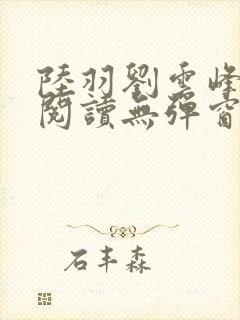 陸羽劉雲峰
閱讀無彈窗
石丰森